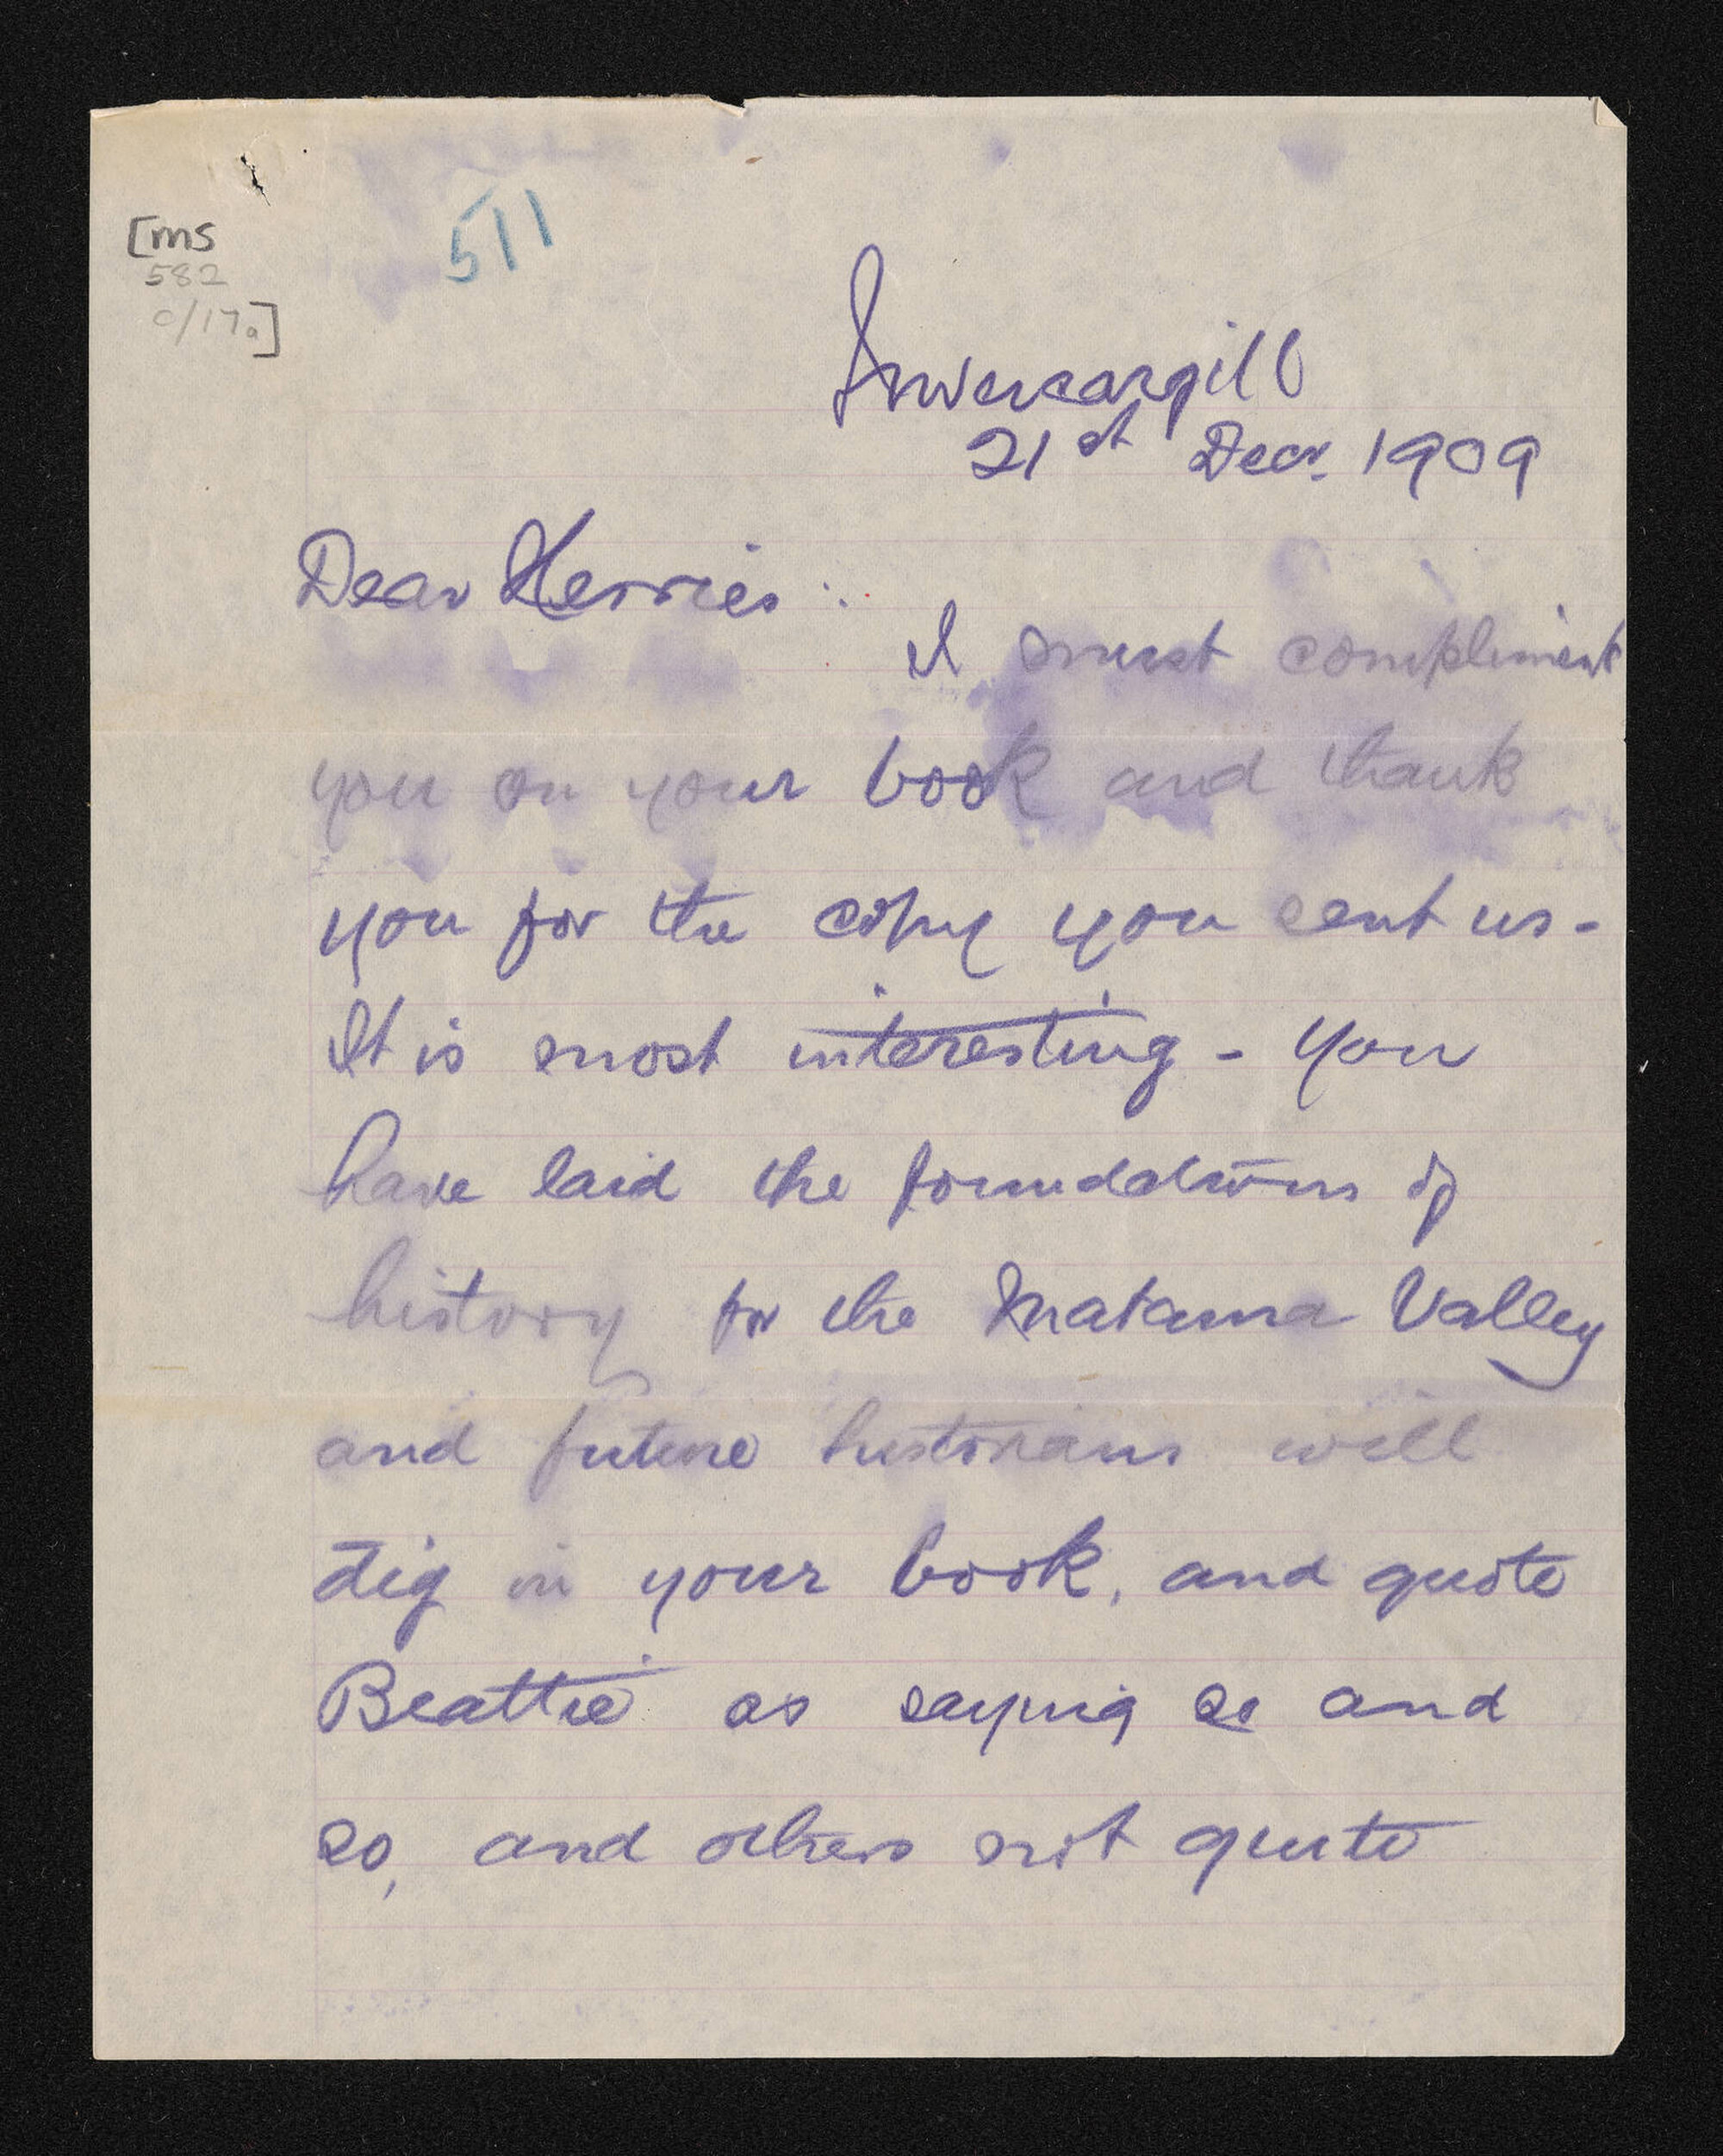 [ms
582
c/17a]
511
Invercargill
21st Decr. 1909
Dear Herries :
I must compliment
you on your book and thank
you for the copy you sent us -
It is most interesting - You
have laid the foundations of
history for the Mataura Valley
and future historians will
dig in your book, and quote
Beattie as saying so and
so, and others not quite